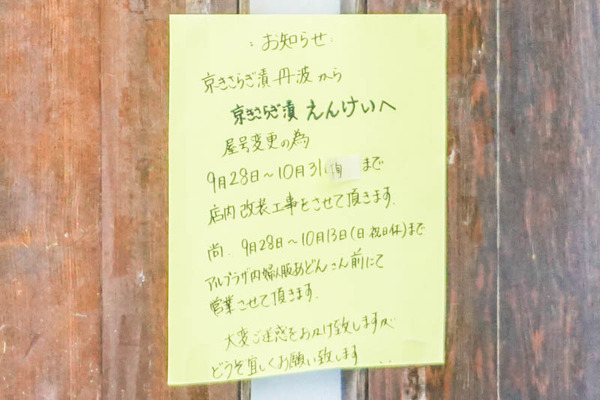 ：お知らせ：
京きさらぎ漬 丹波 から
京きさらぎ漬 えんけいへ
屋号変更の為
9月28日～10月31 旬 まで
店内改装工事をさせて頂きます．
尚．9月28日～10月13日(日 祝日休)まで
アルプラザ内婦人服あどんさん前にて
営業させて頂きます．
大変ご迷惑をおかけ致しますが
どうぞ宜しくお願い致します...